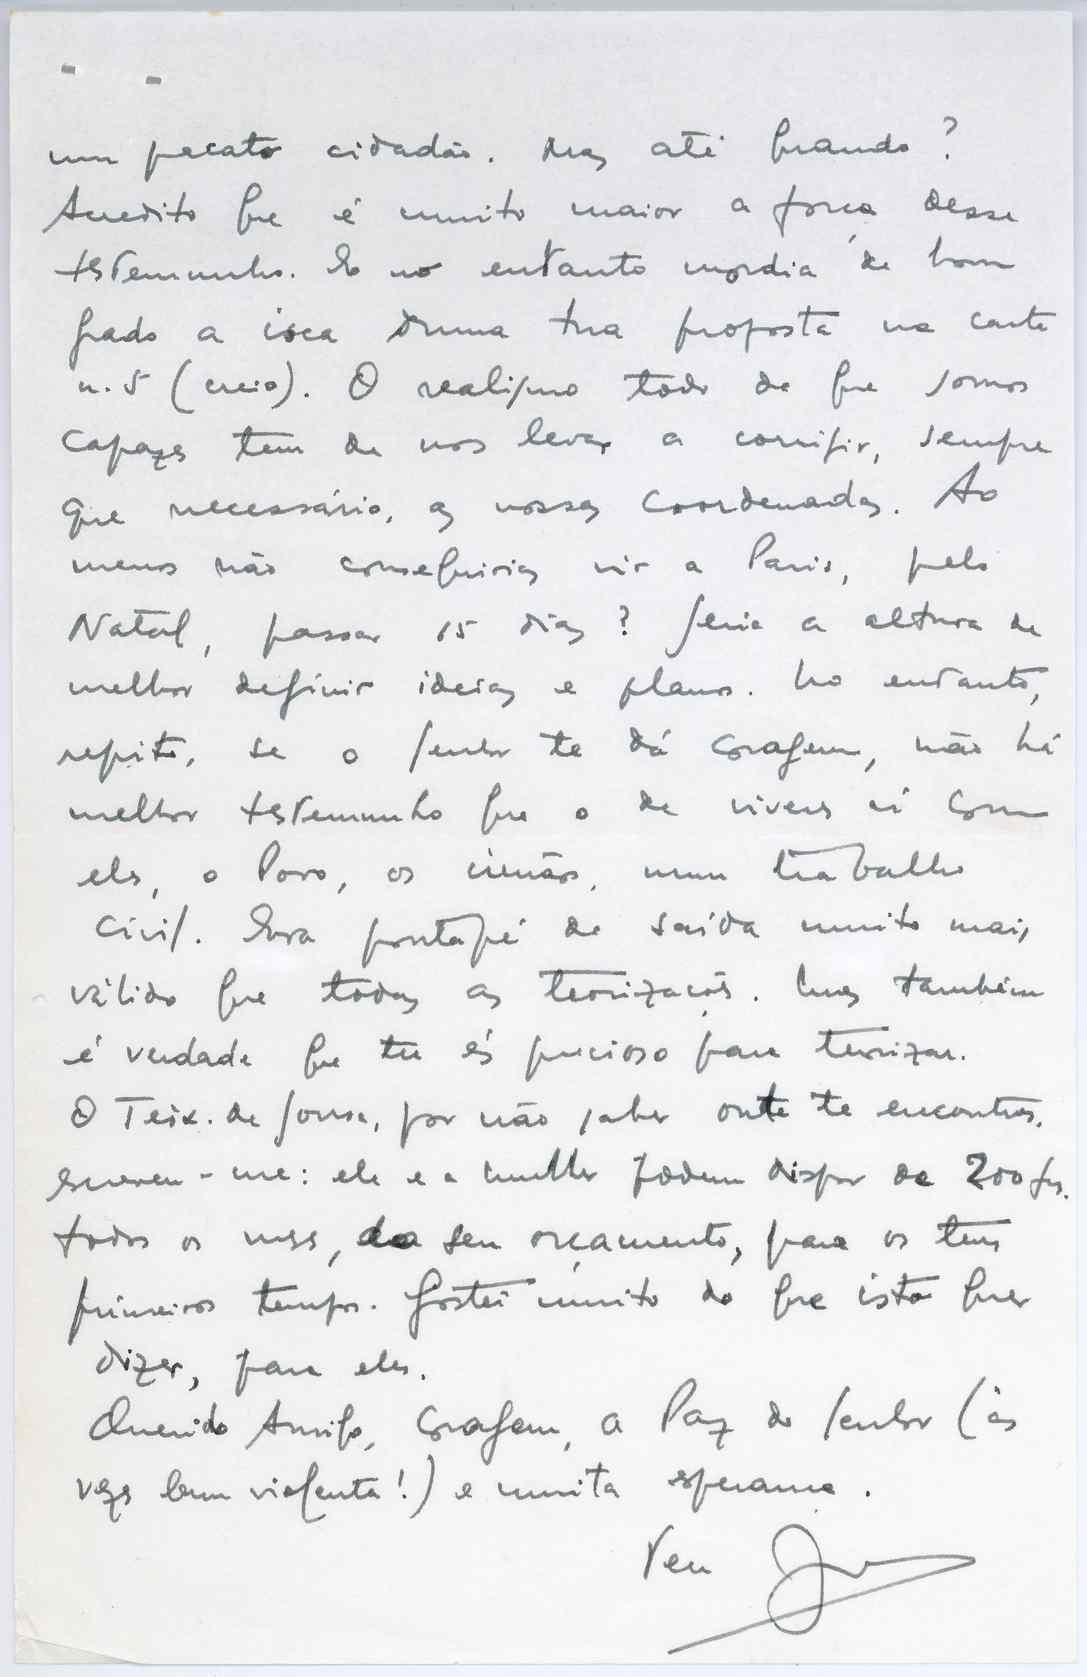 um pacato cidadão. Mas até quando?
Acredito que é muito maior a força desse
testemunho. E no entanto mordia de bom
grado a isca duma tua proposta na carta
n. 5 (creio). O realismo todo de que somos
capazes tem de nos levar a corrigir, sempre
que necessário, as nossas coordenadas. Ao
menos não conseguirias vir a Paris, pelo
Natal, passar 15 dias? Seria a altura de
melhor definir ideias e planos. No entanto,
repito, se o Senhor te dá coragem, não há
melhor testemunho que o de viveres aí com
eles, o Povo, os irmãos, num trabalho
civil. Era pontapé de saída muito mais
válido que todas as teorizações. Mas também
é verdade que tu és precioso para teorizar.
O Teix. de Sousa, por não saber onde te encontras,
escreveu-me: ele e a mulher podem dispor de 200 frs.
todos os meses, do seu orçamento, para os teus
primeiros tempos. Gostei muito do que isto quer
dizer, para eles.
Querido Amigo, coragem, a Paz do Senhor (às
vezes bem violenta!) e muita esperança.
Teu